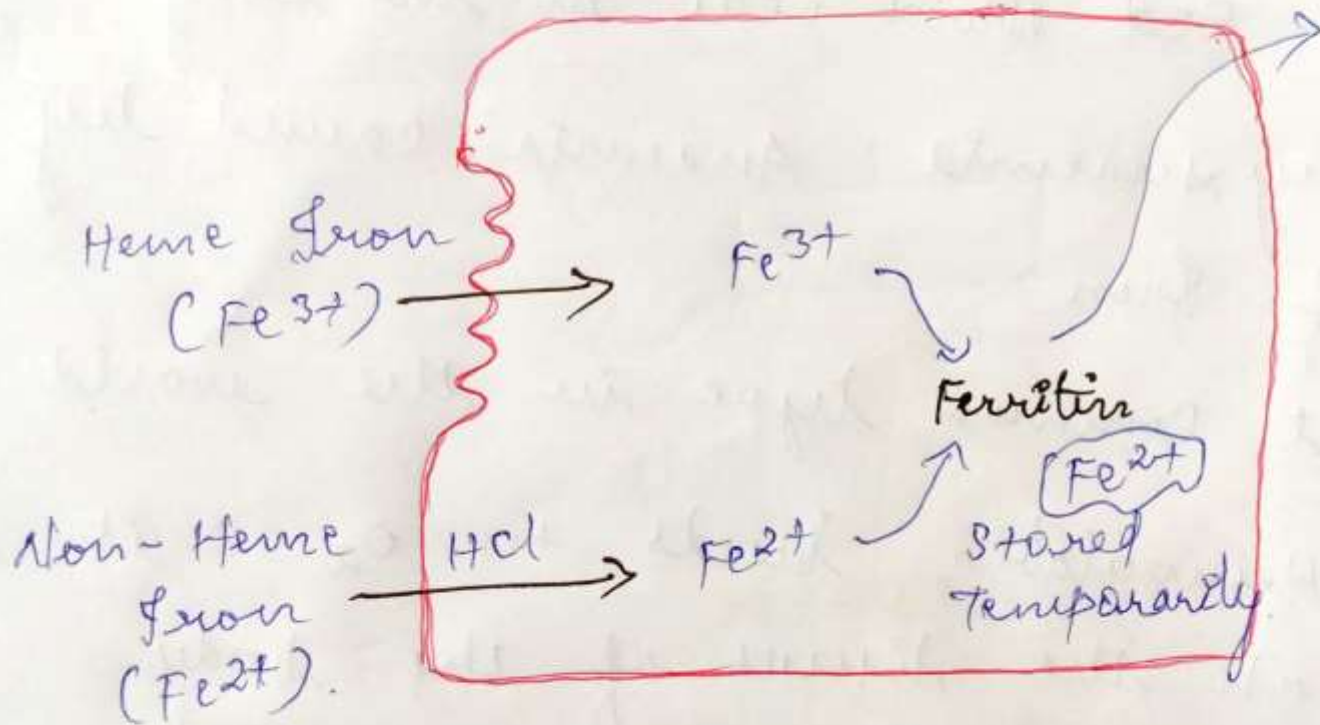 Heme Iron
(Fe3+)
Fe3+
Ferritin
(Fe2+
Stored
Temporarily
Non-Heme
Iron
(Fe2+).
HCl
Fe2+